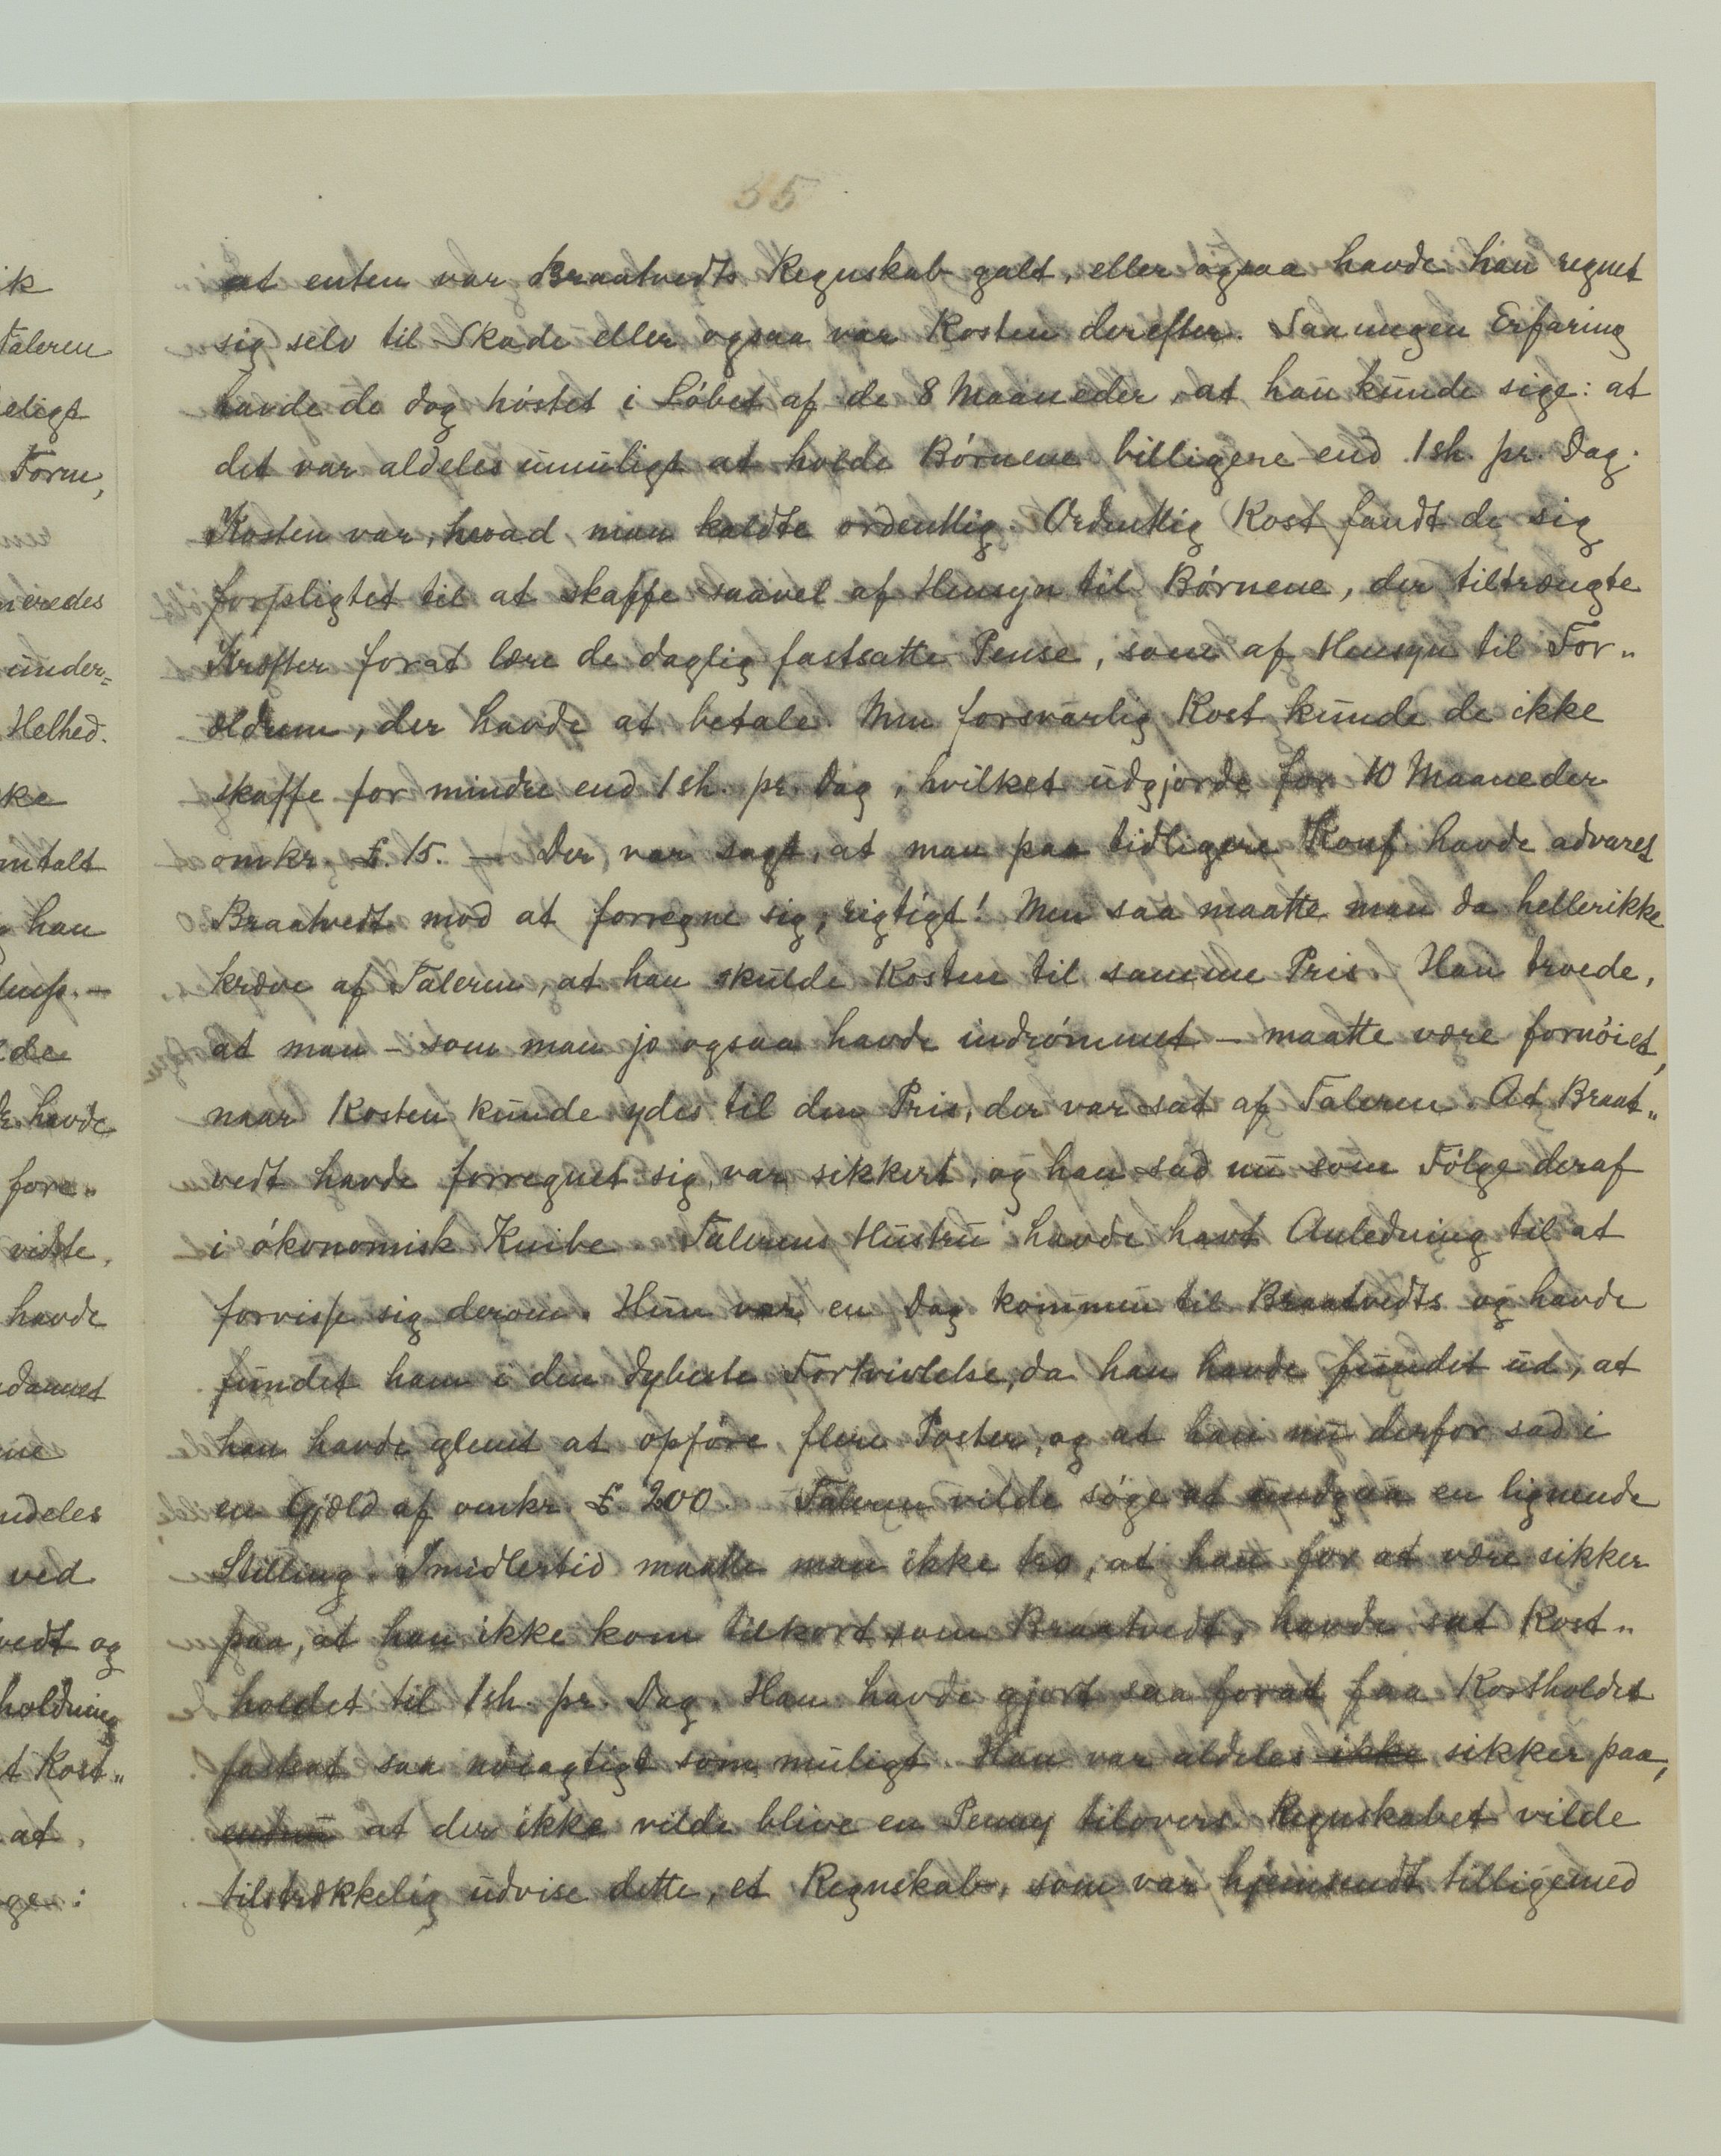 35
at enten var Braatvedts Regnskab galt, eller ogsaa havde han regnet
sig selv til Skade eller ogsaa var Kosten derefter. Saa megen Erfaring
havde de dog høstet i Løbet af de 8 Maaneder, at han kunde sige: at
det var aldeles umuligt at holde Børnene billigere end 1 sh. pr. Dag.
Kosten var, hvad man kaldte ordentlig. Ordentlig Kost fandt de sig
forpligtet til at skaffe saavel af Hensyn til Børnene, der tiltrængte
Kræfter forat lære de daglig fastsatte Pense, som af Hensyn til For„
ældrene, der havde at betale. Men forsvarlig Kost kunde de ikke
skaffe for mindre end 1 sh. pr. Dag, hvilket udgjorde for 10 Maaneder
omkr. £. 15. — Der var sagt, at man paa tidligere Konf. havde advaret
Braatvedt mod at forregne sig, rigtigt! Men saa maatte man da hellerikke
kræve af Taleren, at han skulde Kosten til samme Pris. Han troede,
at man – som man jo ogsaa havde indrømmet – maatte være fornøiet,
naar Kosten kunde ydes til den Pris, der var sat af Taleren. At Braat„
vedt havde forregnet sig, var sikkert, og han sad nu som Følge deraf
i økonomisk Knibe. Talerens Hustru havde havt Anledning til at
forvisse sig derom. Hun var en Dag kommen til Braatvedts og havde
fundet ham i den dybeste Fortvivlelse, da han havde fundet ud, at
han havde glemt at opføre flere Poster, og at han nu derfor sad i
en Gjæld af omkr. £ 200. Taleren vilde søge at undgaa en lignende
Stilling. Imidlertid maatte man ikke tro, at han for at være sikker
paa, at han ikke kom tilkort som Braatvedt, havde sat Kost„
holdet til 1 sh. pr. Dag. Han havde gjort saa forat faa Kostholdet
fastsat saa nøiagtigt som muligt. Han var aldeles ikke sikker paa,
at der ikke vilde blive en Penny tilovers. Regnskabet vilde
tilstrækkelig udvise dette, et Regnskab, som var hjemsendt tilligemed